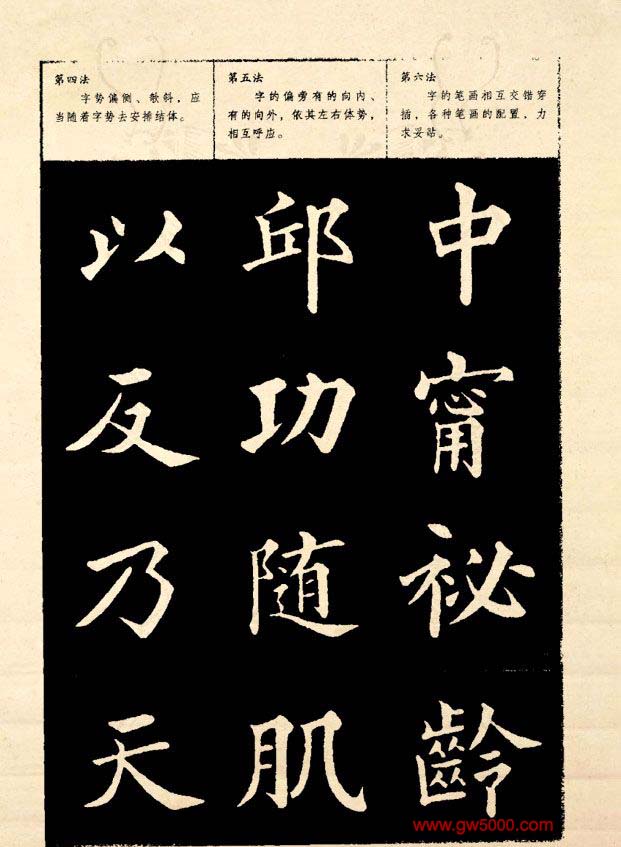 第四法
字势偏侧、欹斜，应
当随着字势去安排结体。
以
反
乃
天
第五法
字的偏旁有的向内、
有的向外，依其左右体势，
相互呼应。
邱
功
随
肌
第六法
字的笔画相互交错穿
插，各种笔画的配置，力
求妥贴。
中
甯
祕
齡
www.gw5000.com